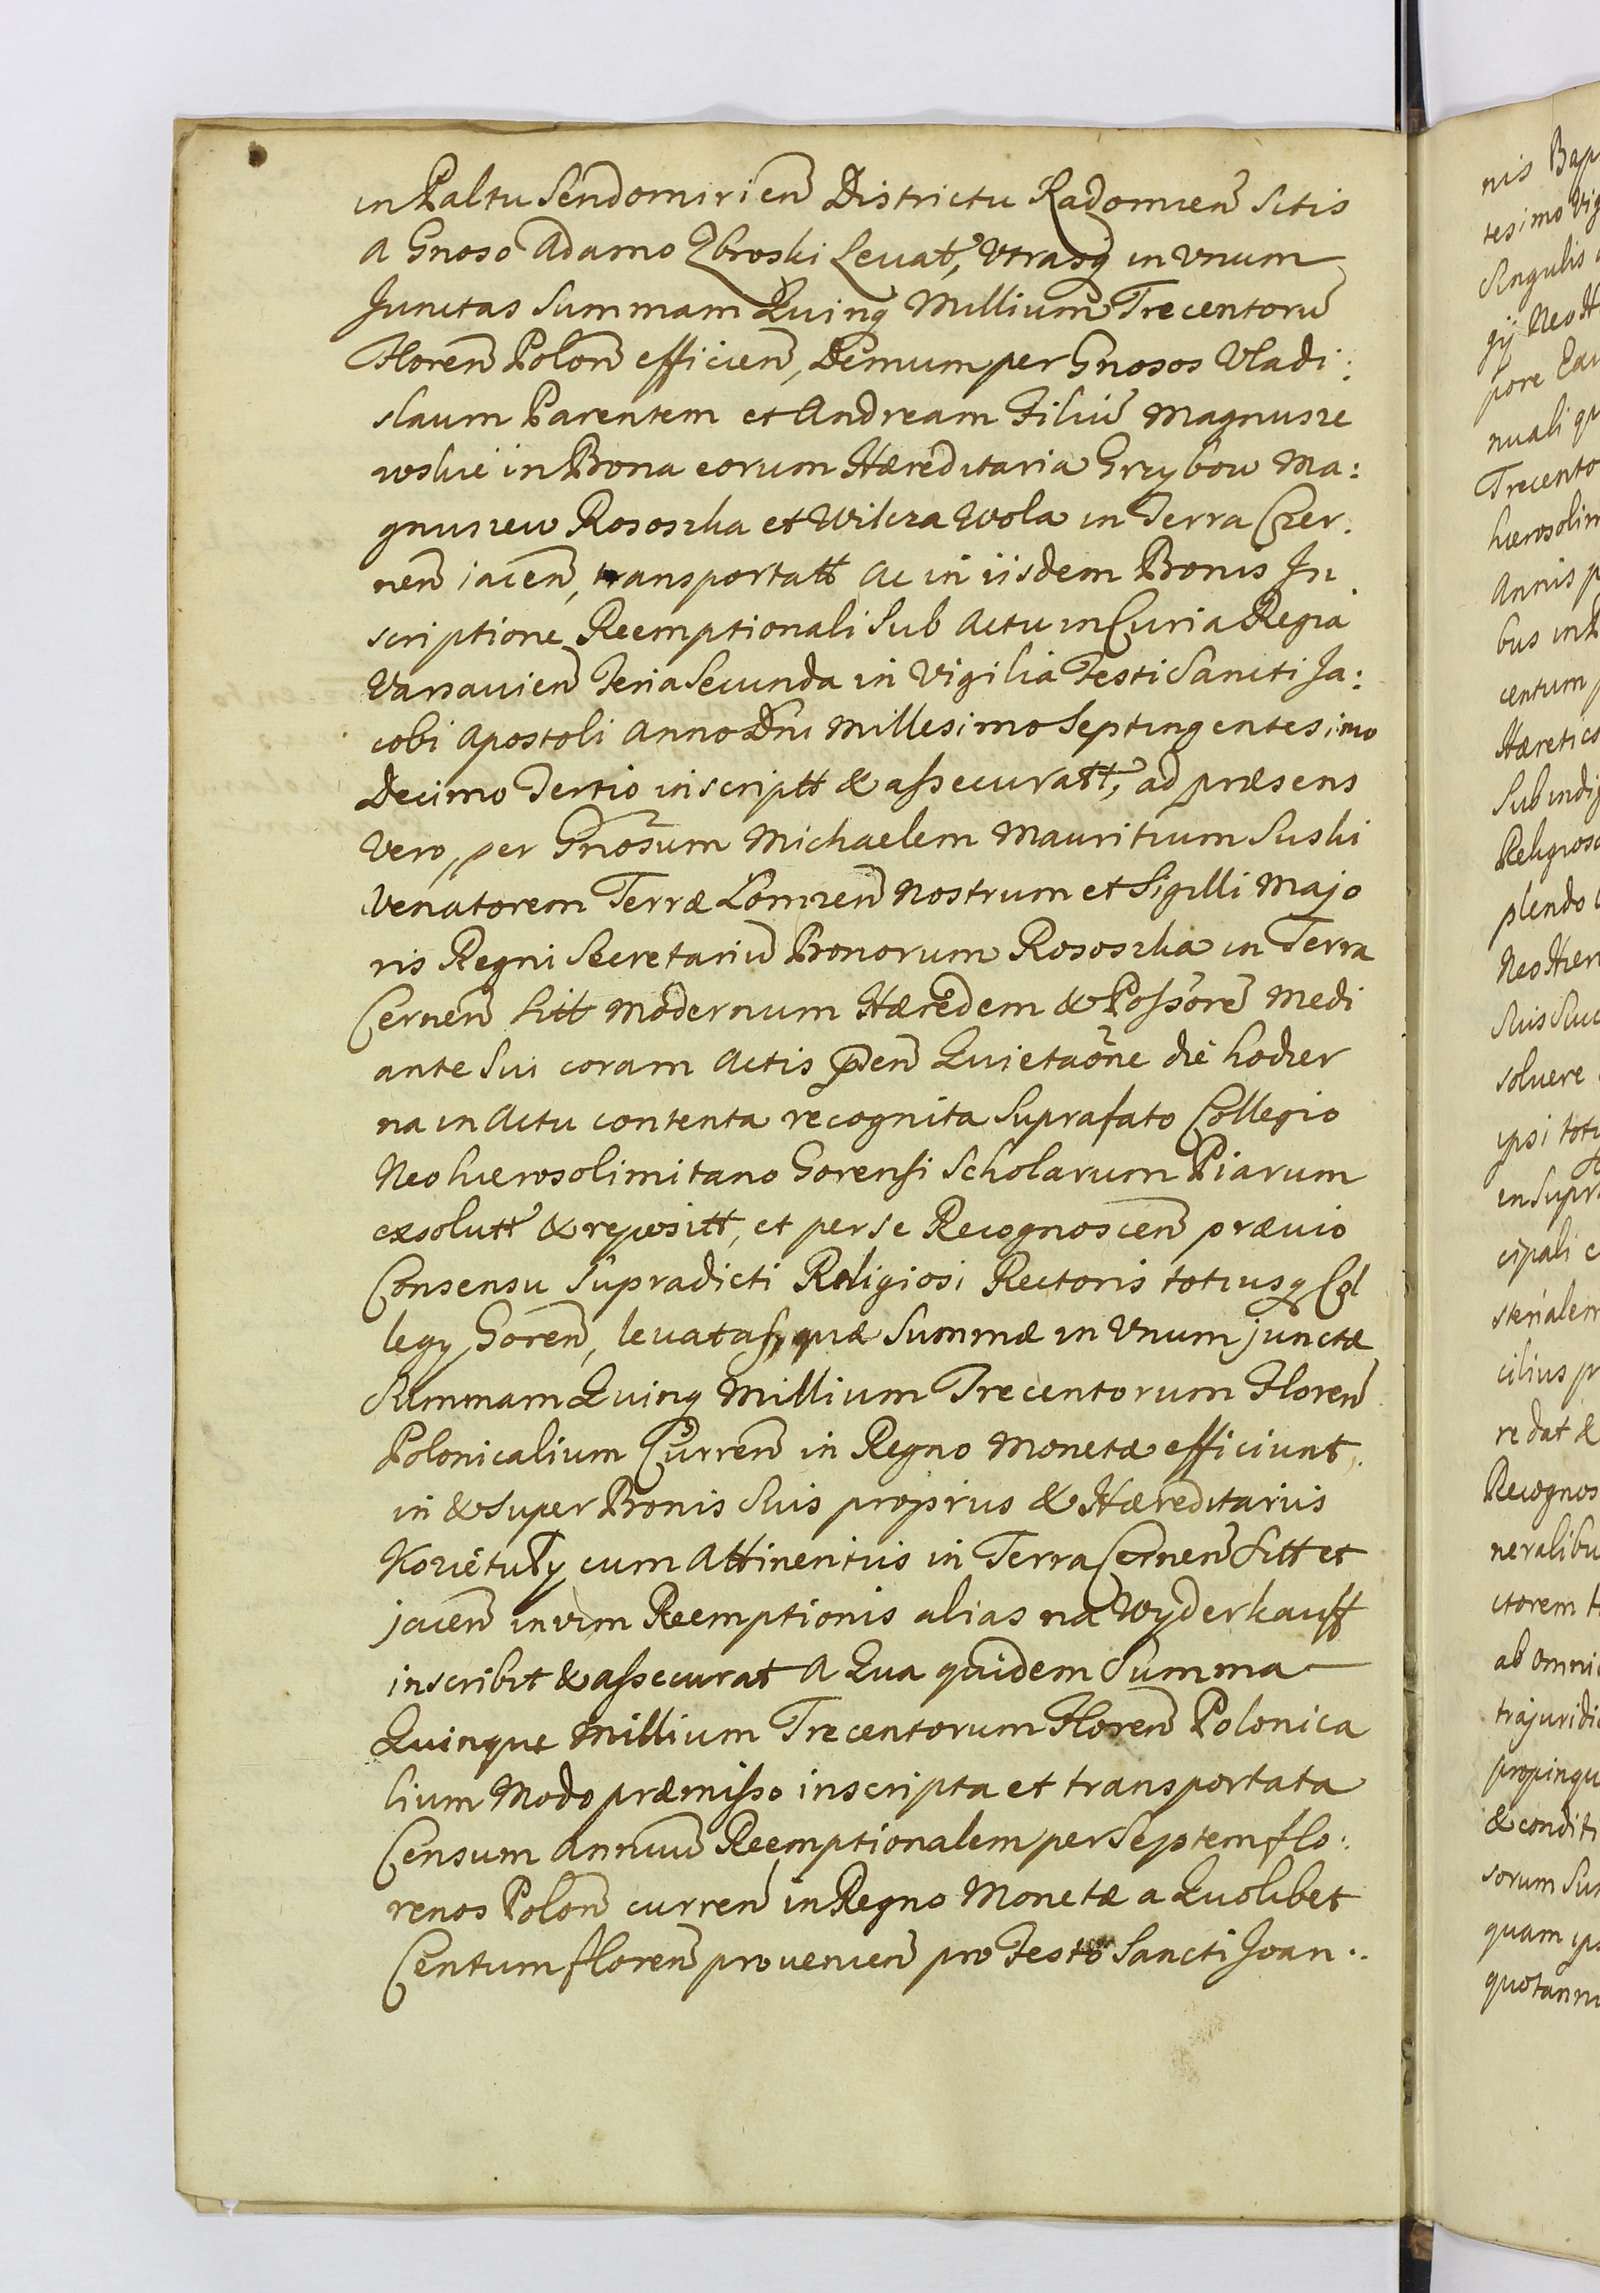 in Paltu Sendomirien Districtu Radomien Sitis
A Gnoso Adamo Zbroski Levat, Utrasq in Unum
Junctas Summam Quinq Millium Trecentorū
Floren Polon efficien, Demum per Gnosos Vladi:
slaum Parentem et Andream Filiū Magnusze
wskie in Bona eorum Hæreditaria Grzybow Ma:
gnuszew Rososzka et Wilcza Wola in Terra Czer.
nen iacen, transportatt Ac in iisdem Bonis In
scriptione Reemptionali Sub Actu in Curia Regia
Varsavien Feria Secunda in Vigilia Festi Sancti Ja:
cobi Apostoli Anno Dni Millesimo Septingentesimo
Decimo Tertio inscriptt & assecuratt, ad præsens
Vero, per Gnosum Michaelem Mauritium Suski
Venatorem Terræ Lomzen Nostrum et Sigilli Majo
ris Regni Secretariū Bonorum Rososzka in Terra
Cernen Sitt Modernum Hæredem & Possorē Medi
ante Sui coram Actis pñen Quietaõne die hodier
na in Actu contenta recognita Suprafato Collegio
Neohierosolimitano Gorensi Scholarum Piarum
exsolutt & repositt, et per se Recognoscen prævio
Consensu Supradicti Religiosi Rectoris totiusq Col
legy Goren, levatas, quæ Summæ in Unum junctæ
Summam Quinq Millium Trecentorum Floren
Polonicalium Curren in Regno Monetæ efficiunt,
in & super Bonis Suis proprius & Hæreditarius
Kozietuły cum Attinentiis in Terra Cernen Sitt et
jacen in vim Reemptionis alias na Wyderkauff
inscribit & assecurat A Qua quidem Summa
Quinque Millium Trecentorum Floren Polonica
lium Modo præmisso inscripta et transportata
Censum Annuū Reemptionalem per Septem flo:
renos Polon curren in Regno Monetæ a Quolibet
Centum floren provenien pro Festo Sancti Joan:
nis Bap
tesimo Vig
Singulis
gij Neo H
pore
nuali qu
Trecento
hierosolim
Annis p
bus in
centum p
Hæretico
Sub indi
Religioso
plendo
Neo Hier
Suis Suc
solvere
ipsi tot
in Supr
cipali c
sterialem
cilius pr
redat &
Recognos
neralibu
ctorem
ab omni
trajuridic
propinqu
& condit
sorum Su
quam ip
quotanni